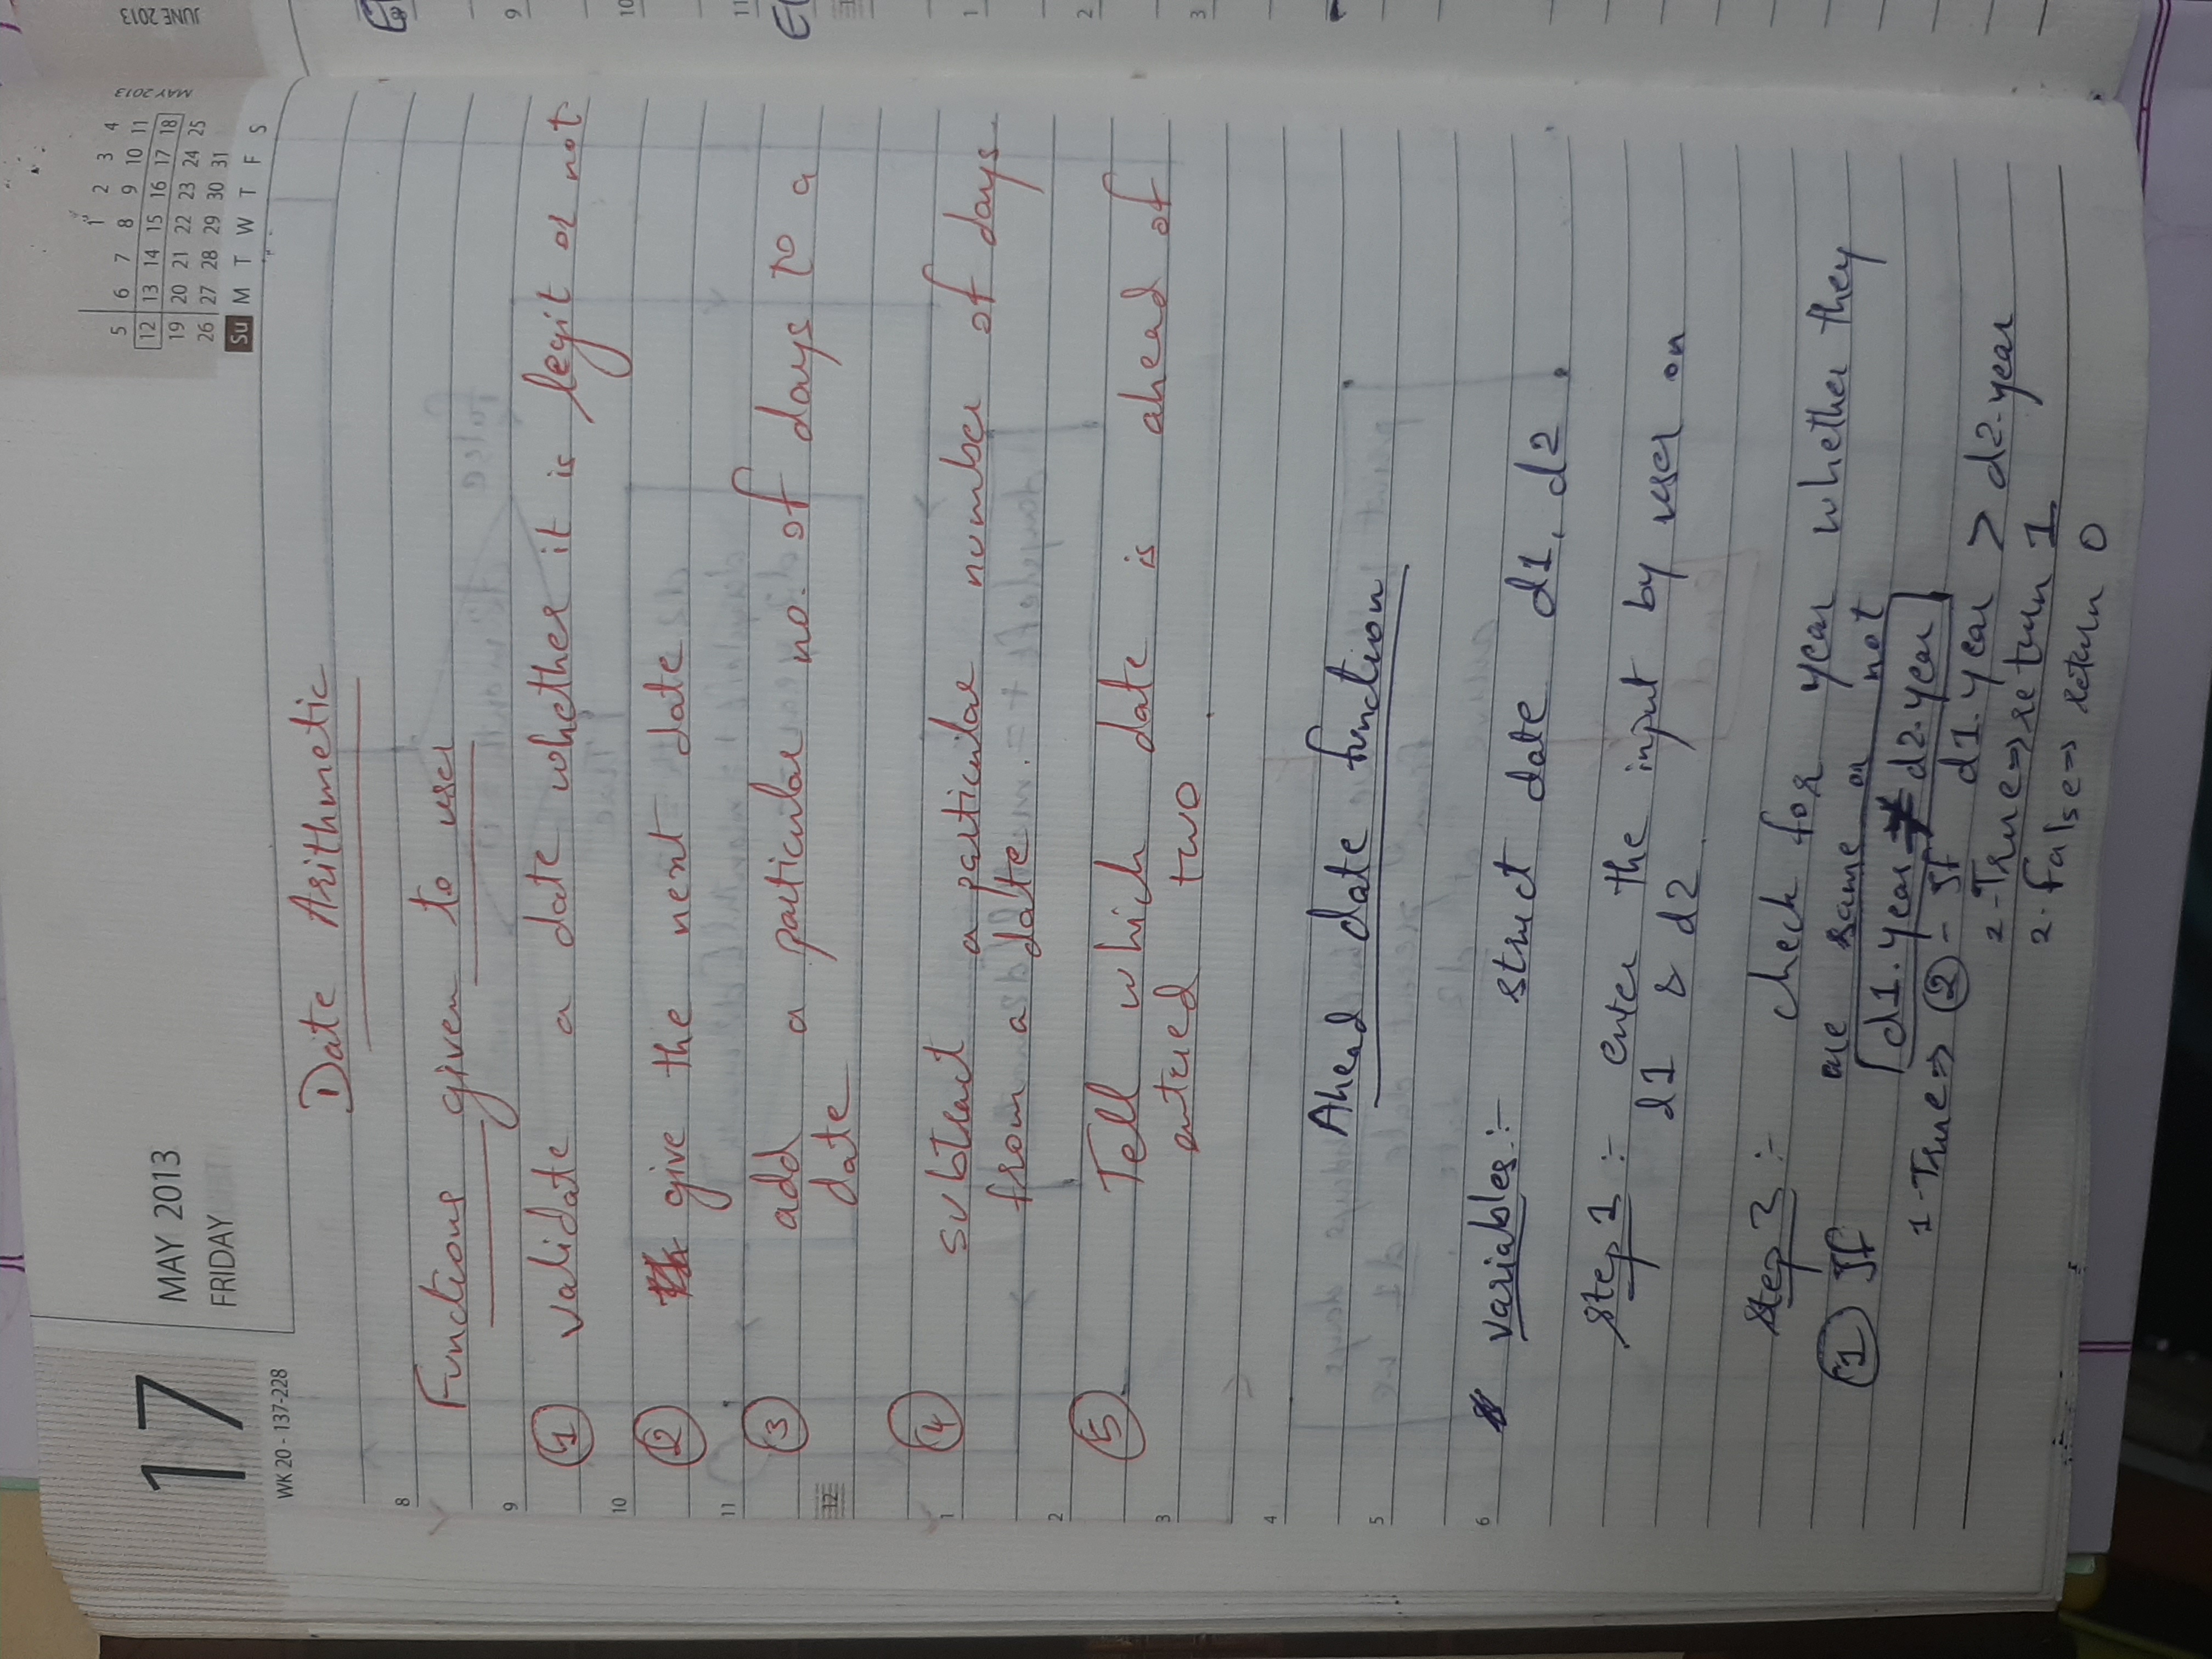 17
MAY 2013
FRIDAY
WK 20 - 137-228
1 2 3 4
5 6 7 8 9 10 11
12 13 14 15 16 17 18
19 20 21 22 23 24 25
26 27 28 29 30 31
Su M T W T F S
MAY 2013
JUNE 2013
Date Arithmetic
8
Functions given to user
9
1 validate a date whether it is legit or not
10
2 give the next date
11
3 add a particular no. of days to a
12
date
4
1
subtract a particular number of days
from a date.
2
5 Tell which date is ahead of
3
entered two.
4
Ahead date function
5
6
variables:- struct date d1, d2.
step 1 :- enter the input by user on
d1 & d2.
step 2 :- check for year whether they
are same or not
1 If d1.year ≠ d2.year
1-True⇒ 2 - If d1.year > d2.year
2-True⇒return 1
2-False⇒ return 0
9
10
11
1
2
3